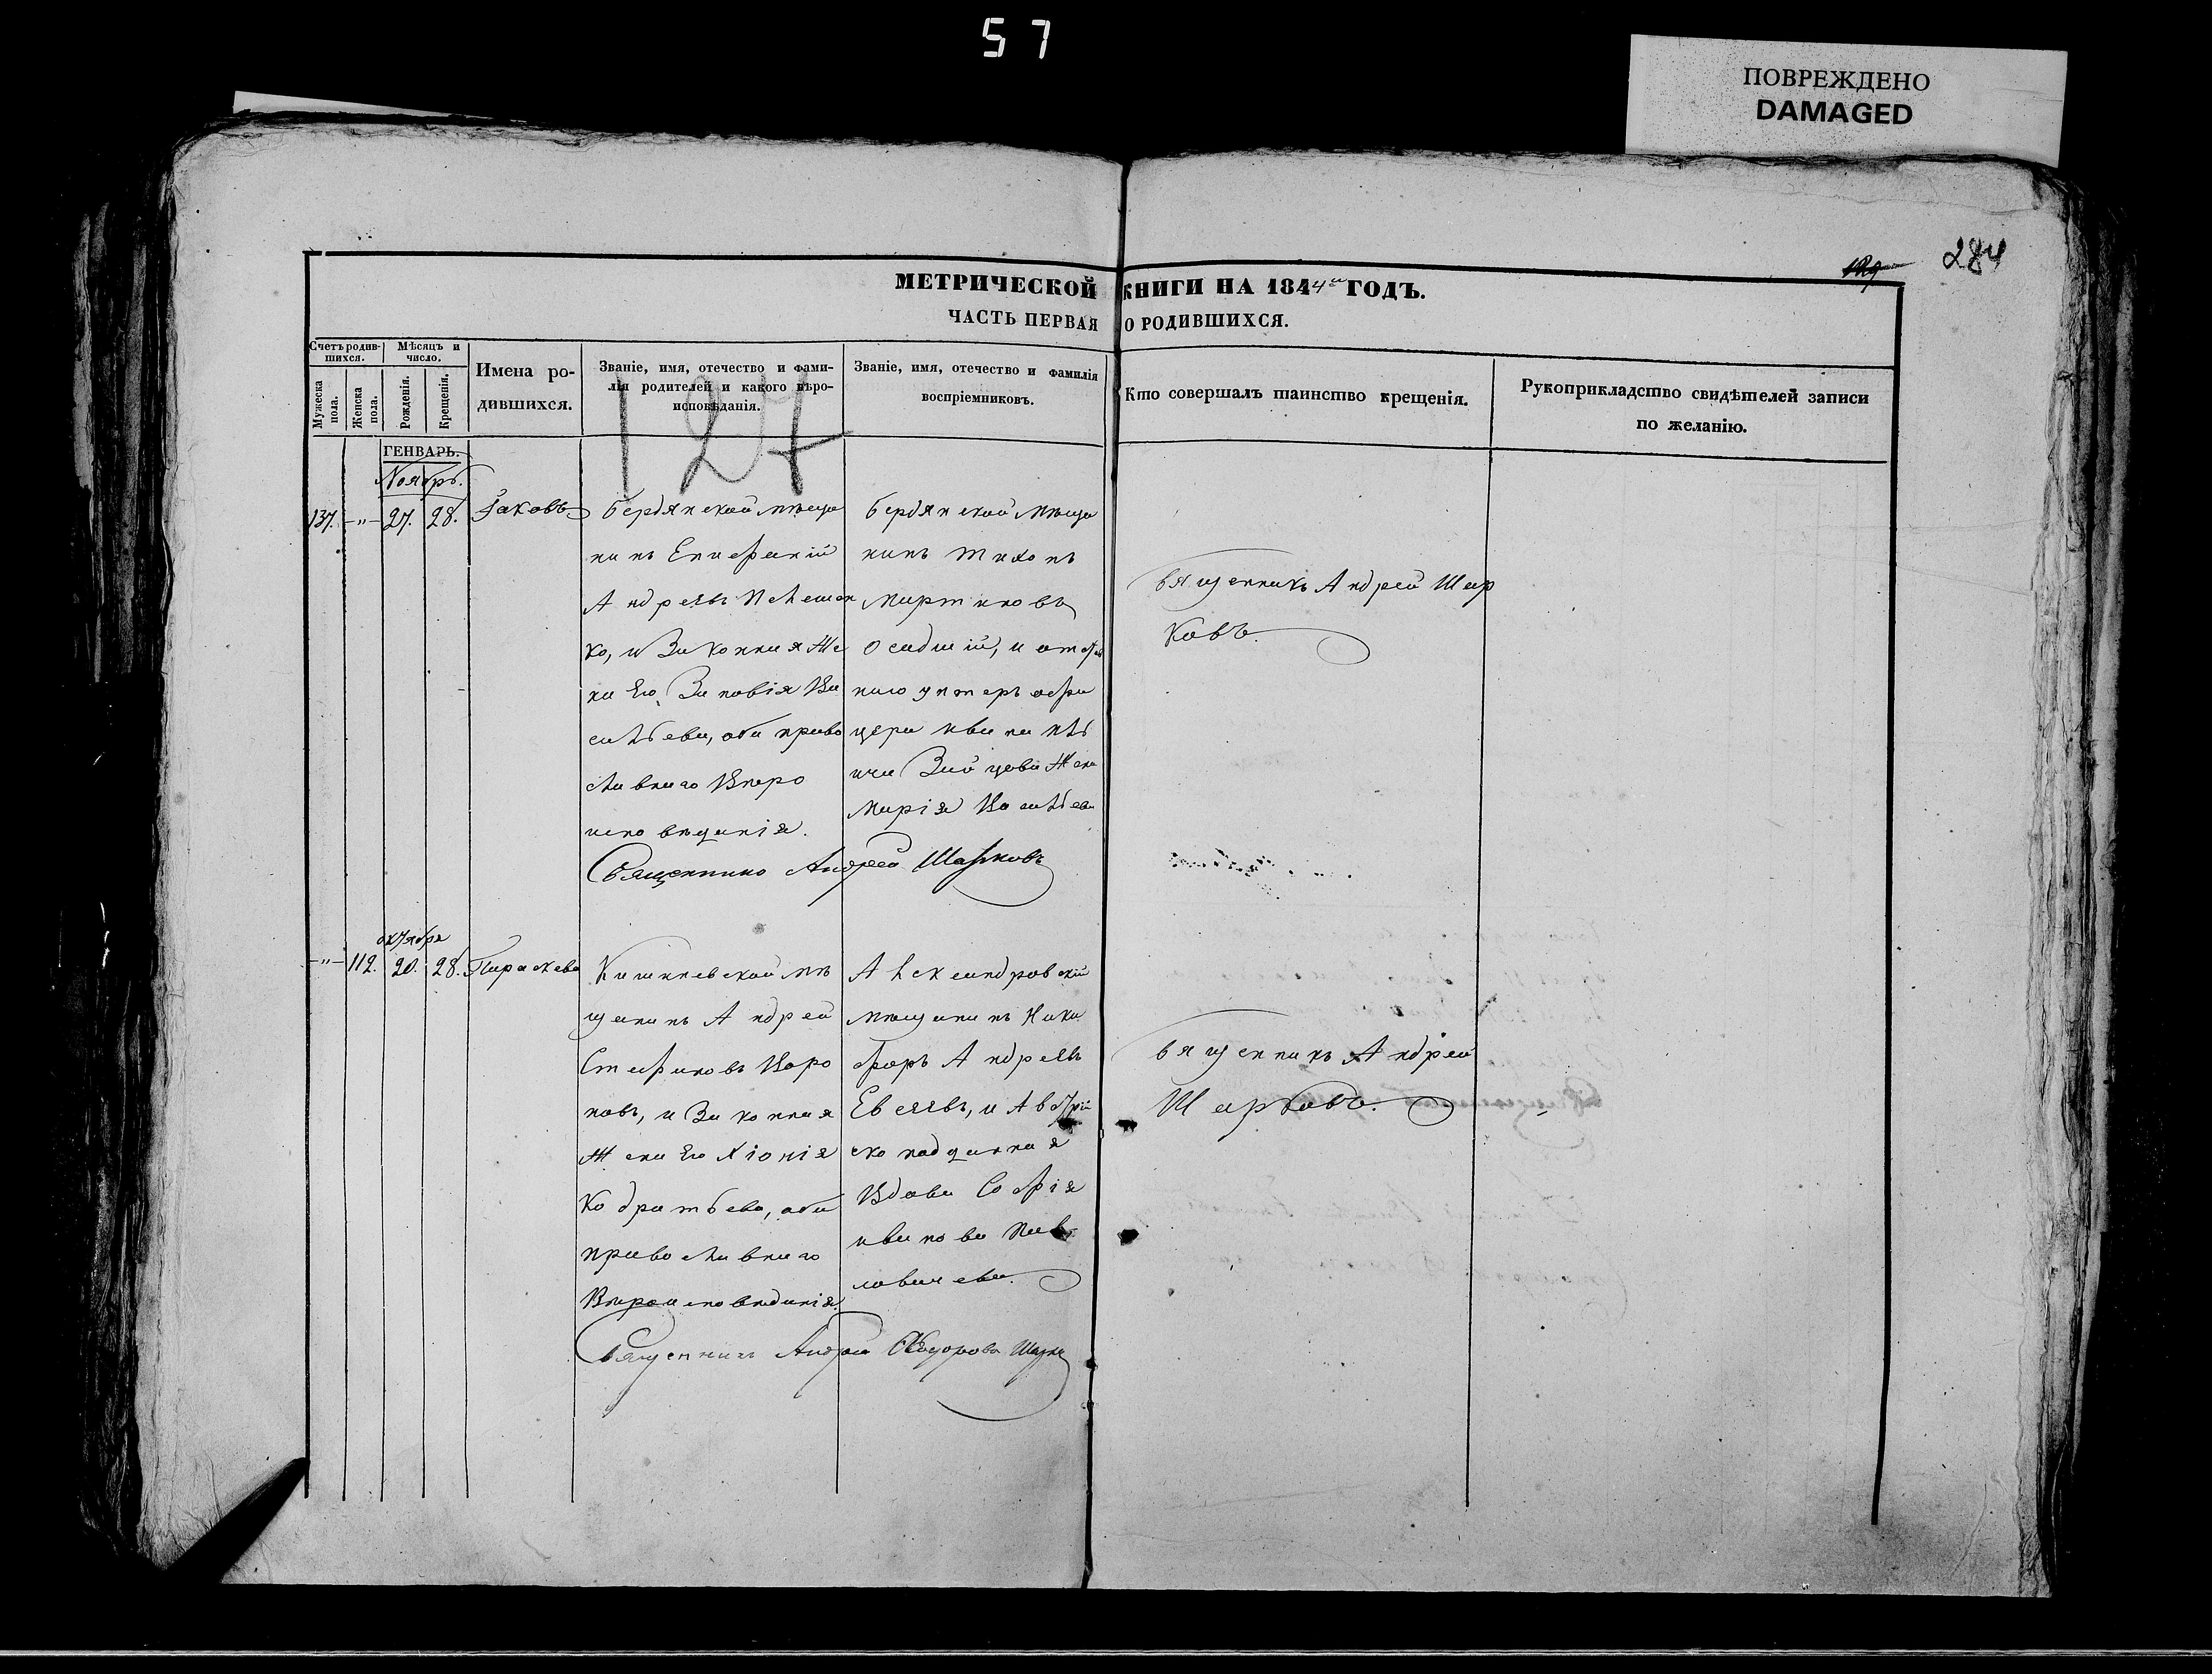 57
ПОВРЕЖДЕНО
DAMAGED
284
МЕТРИЧЕСКОЙ КНИГИ НА 1844 ГОДЪ.
ЧАСТЬ ПЕРВАЯ О РОДИВШИХСЯ.
Счетъ родившихся.
Мужеска пола.
Женска пола.
Мѣсяцъ и число.
Рожденія.
Крещенія.
Имена ро-
дившихся.
Званіе, имя, отечество и фами-
лія родителей и какого вѣро-
исповѣданія.
Званіе, имя, отечество и фамилія
воспріемниковъ.
Кто совершалъ таинство крещенія.
Рукоприкладство свидѣтелей записи
по желанію.
127
ГЕНВАРЬ.
Ноябрь.
137. -"- 27. 28. Іаковъ
Бердянской мѣща
нинъ Епифаній
Андреевъ
ко, и Законная Же
на Его Зиновія Ва
сильева, оба право
славнаго Вѣро
исповѣданія.
Бердянской Мѣща
нинъ Тихонъ
Мартиновъ
Осадшій, и
унтеръ офи
цера Ивана
Зайцева Жена
Марія Васильева
Священникъ Андрей Шар
ковъ.
Священникъ Андрей Шарковъ
октября
-"- 112. 20. 28. Параскева
Кишиневской мѣ
щанинъ Андрей
Стефановъ Воро
новъ, и Законная
Жена Его Хіонія
Кодратьева, оба
православнаго
Вѣроисповѣданія.
Александровскій
мѣщанинъ Ники
форъ Андреевъ
Евсеевъ, и Австрій
ско подданная
Вдова Софія
Иванова Пав
ловичева.
Священникъ Андрей
Шарковъ.
Священникъ Андрей